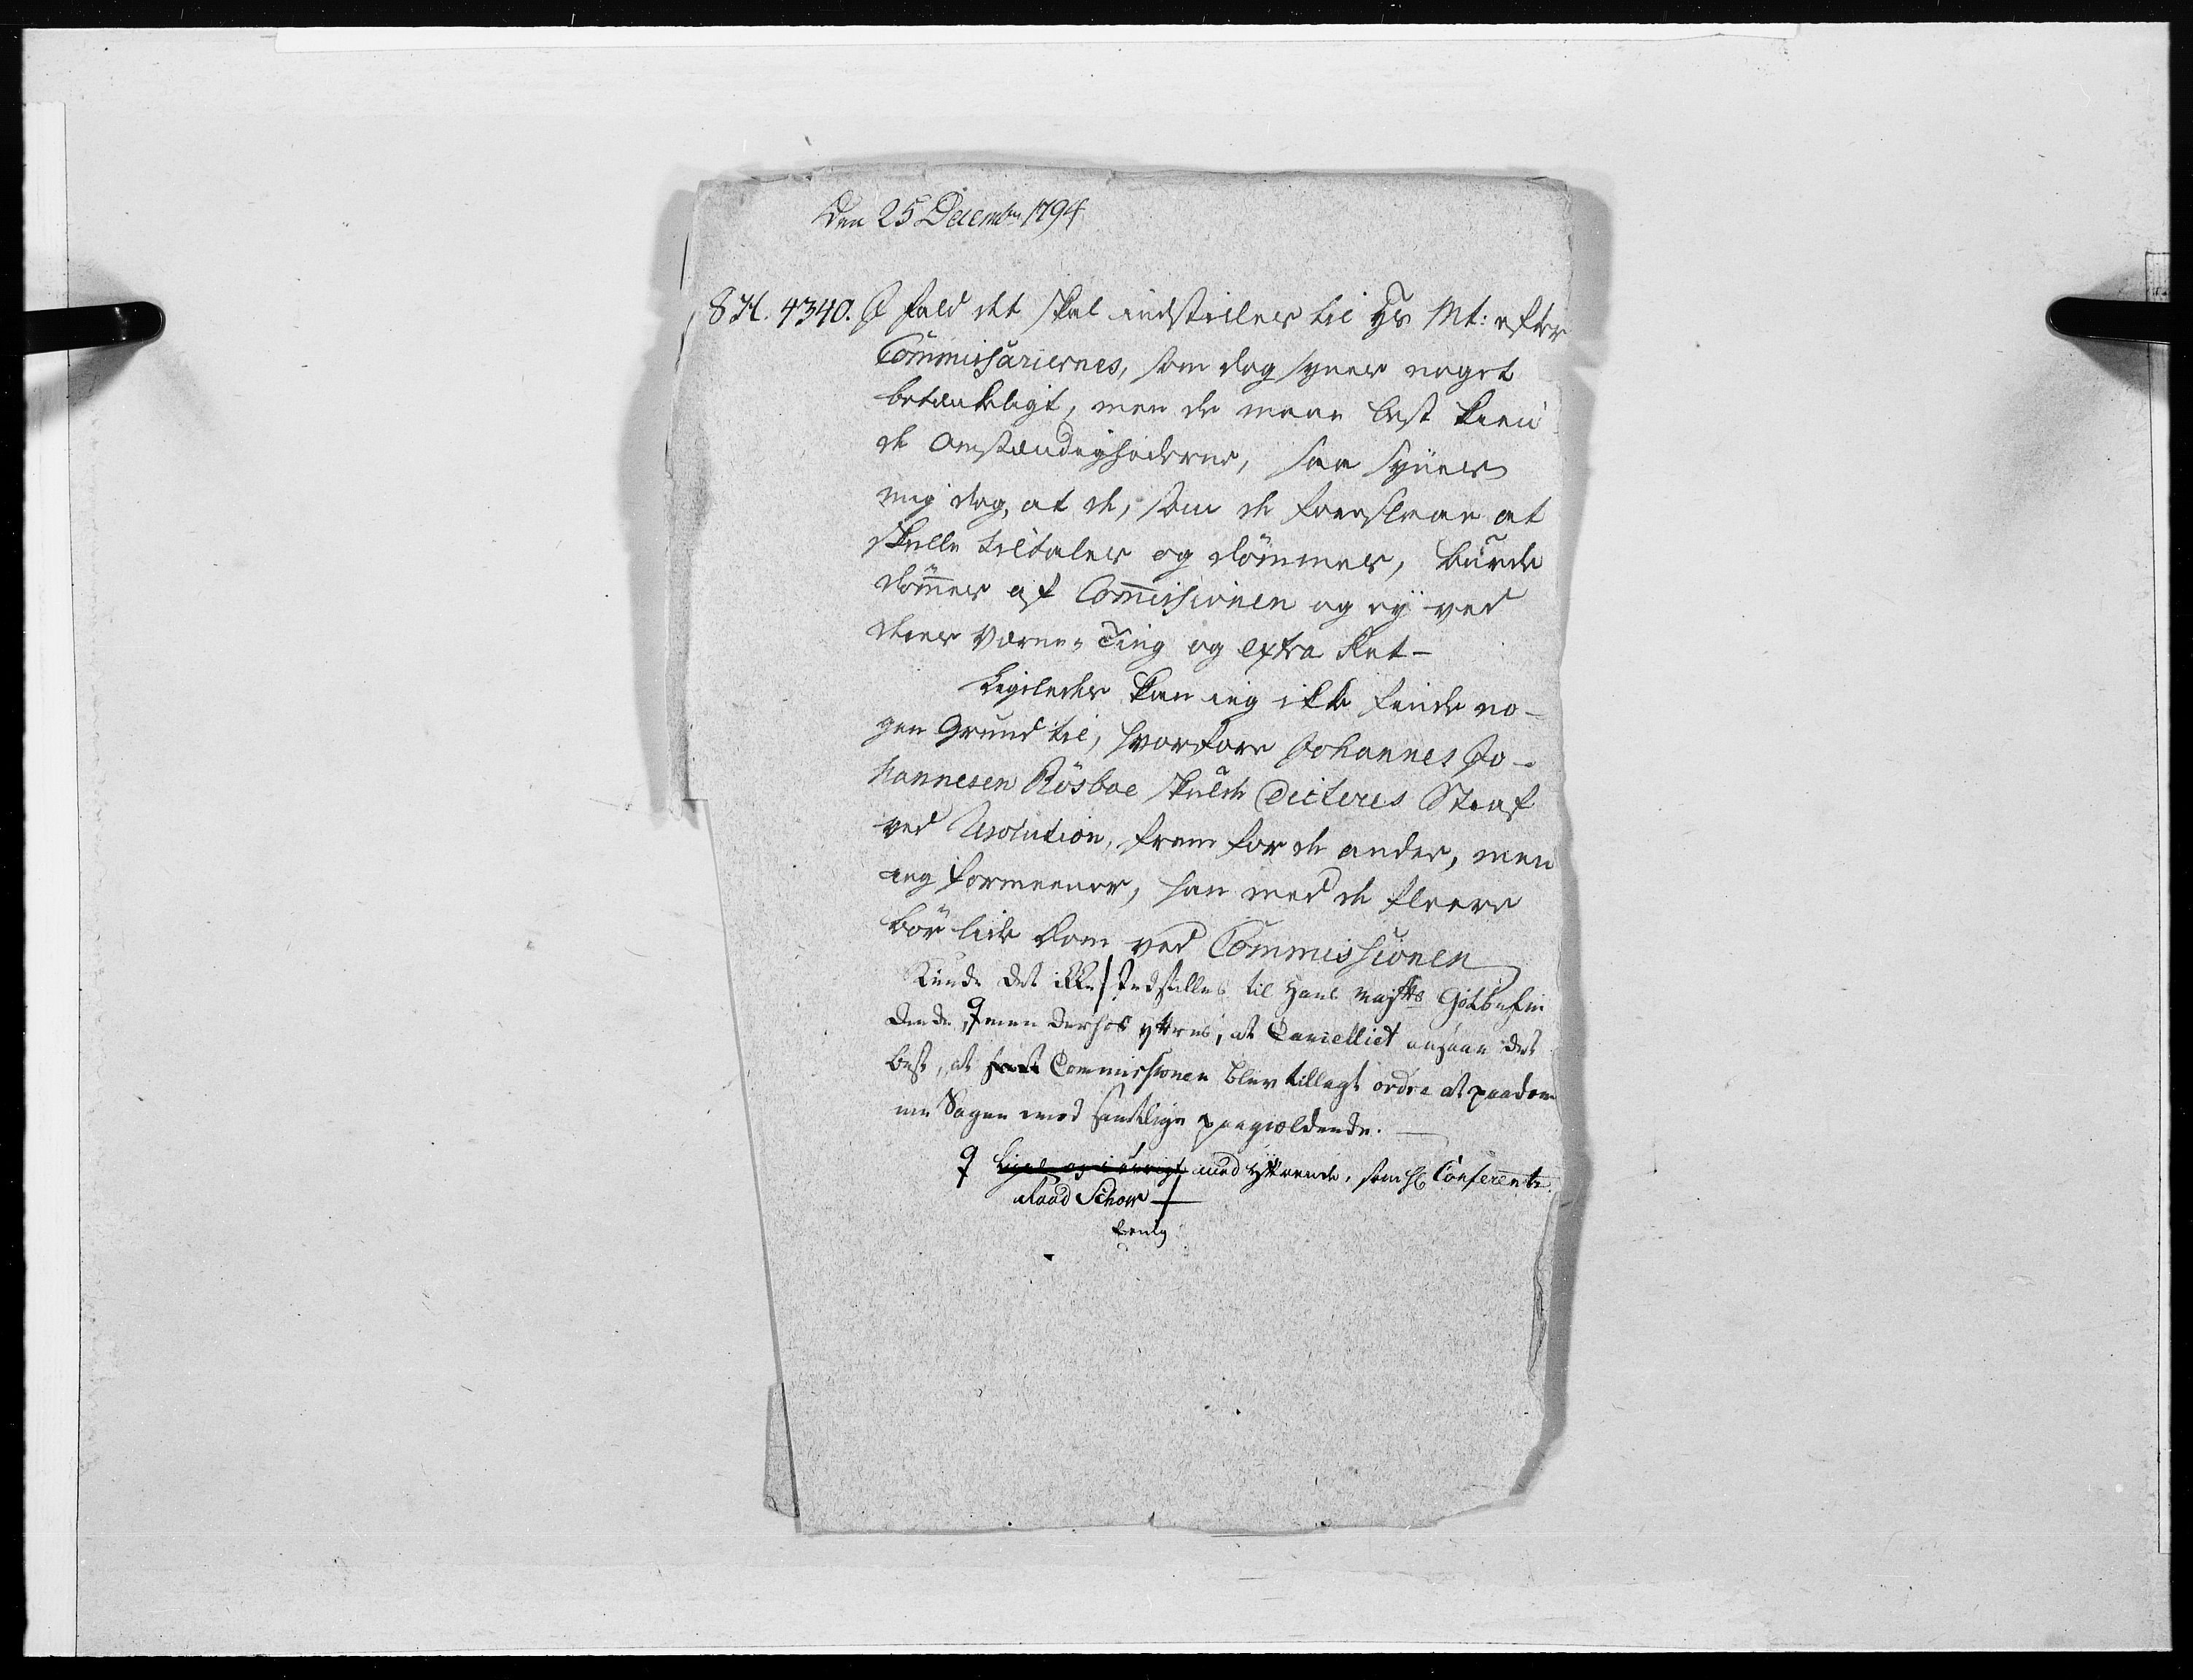 Den 25 Decembr 1794
8 H. 4340. I fald det skal indstilles til Hs Mt: efter
Commissariernes, som dog synes noget
betænkeligt, men de maae best kien
de Omstændighederne, saa synes
mig dog, at de, som de foreslaae at
skulle tiltales og dömmes, burde
döm̅es af Com̅issionen og ey ved
deres Værne-Ting og extra Ret-
Ligeledes kan ieg ikke finde no-
gen Grund til, hvorfore Johannes Jo-
hannesen Rösboe skulde dicteres Straf
ved Resolution, frem for de andre, men
ieg formeener, han med de fleere
bör lide Dom ved Commissionen
Kunde det ikke indstilles til Hans Majts Gotbefin
dende, men derhos yttres, at Cancelliet ansaae det
best, at Commissionen blev tillagt ordre at paadöm
me Sagen mod samtlige paagieldende.
Ligel og i övrigt med yttrende, som H Conferentz
Raad Schow